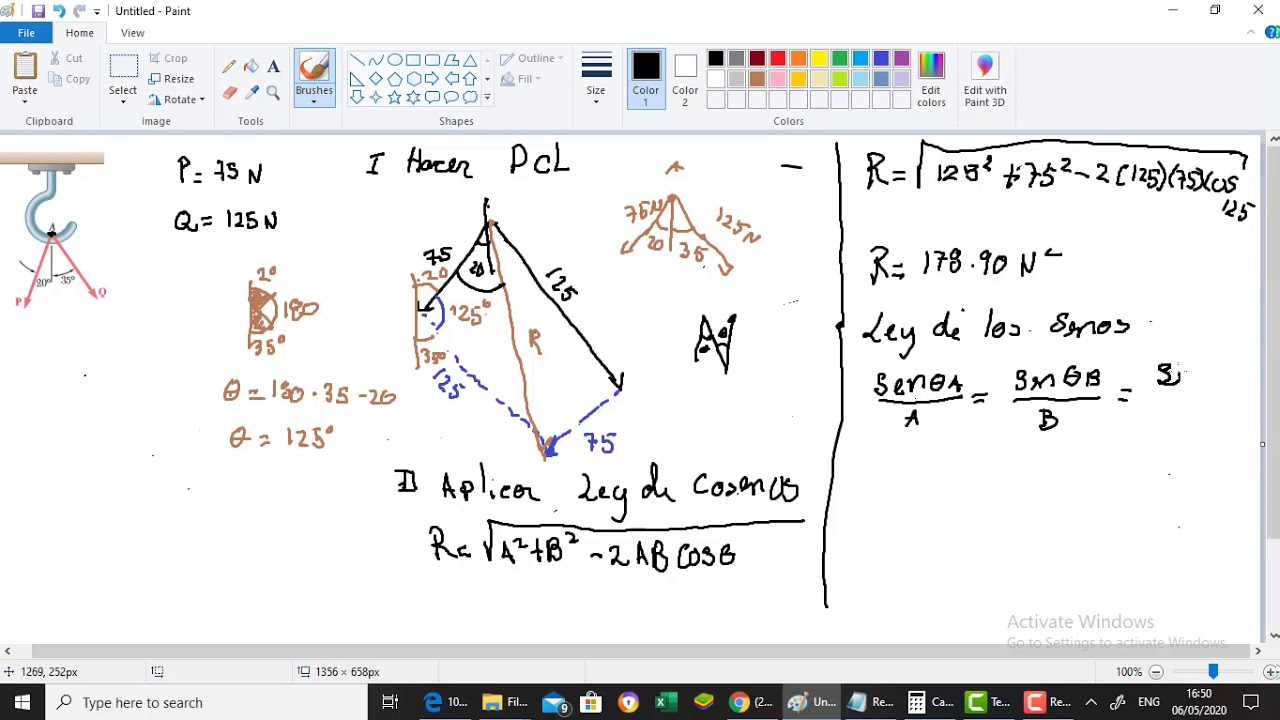 Untitled - Paint
File
Home
View
Paste
Cut
Copy
Clipboard
Select
Crop
Resize
Rotate
Image
Tools
Brushes
Outline
Fill
Shapes
Size
Color 1
Color 2
Edit colors
Edit with Paint 3D
Colors
A
20°
35°
P
Q
P = 75 N
Q = 125 N
2°
180
35°
θ = 180 · 35 - 20
θ = 125°
I Hacer DCL
75
20
20
125
125°
R
350
125
75
A
75N
125N
20
35
II Aplicar Ley de Cosenos
R = √A² + B² - 2 AB Cosθ
R = √125² + 75² - 2 (125)(75) Cos 125
R = 178.90 N
Ley de los Senos
Sen θA / A = Sen θB / B =
Activate Windows
Go to Settings to activate Windows.
1269, 252px
1356 × 658px
100%
Type here to search
10...
Fil...
9
(2...
Un...
Re...
Ca...
Te...
Re...
ENG
16:50
06/05/2020